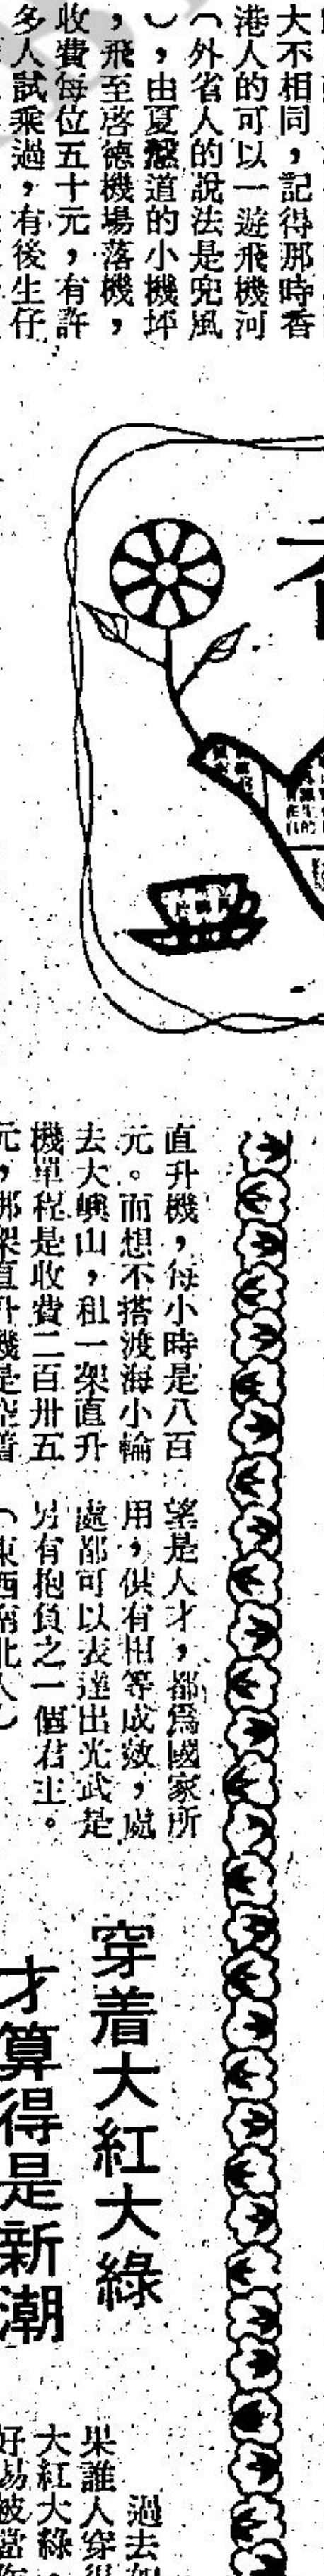 大不相同，記得那時香
港人的可以一遊飛機河
（外省人的說法是兜風
），由夏慤道的小機坪
，飛至啓德機場落機，
收費每位五十元，有許
多人試乘過，有後生仔
直升機，每小時是八百
元。而想不搭渡海小輪
去大嶼山，租一架直升
機單程是收費二百卅五
元，那架直升機是
望是人才，都爲國家所
用，俱有相等成效，處
處都可以表達出光武是
另有抱負之一個君主。
（東西南北人）
穿着大紅大綠
才算得是新潮
過去如
果誰人穿得
大紅大綠，
好易被當作